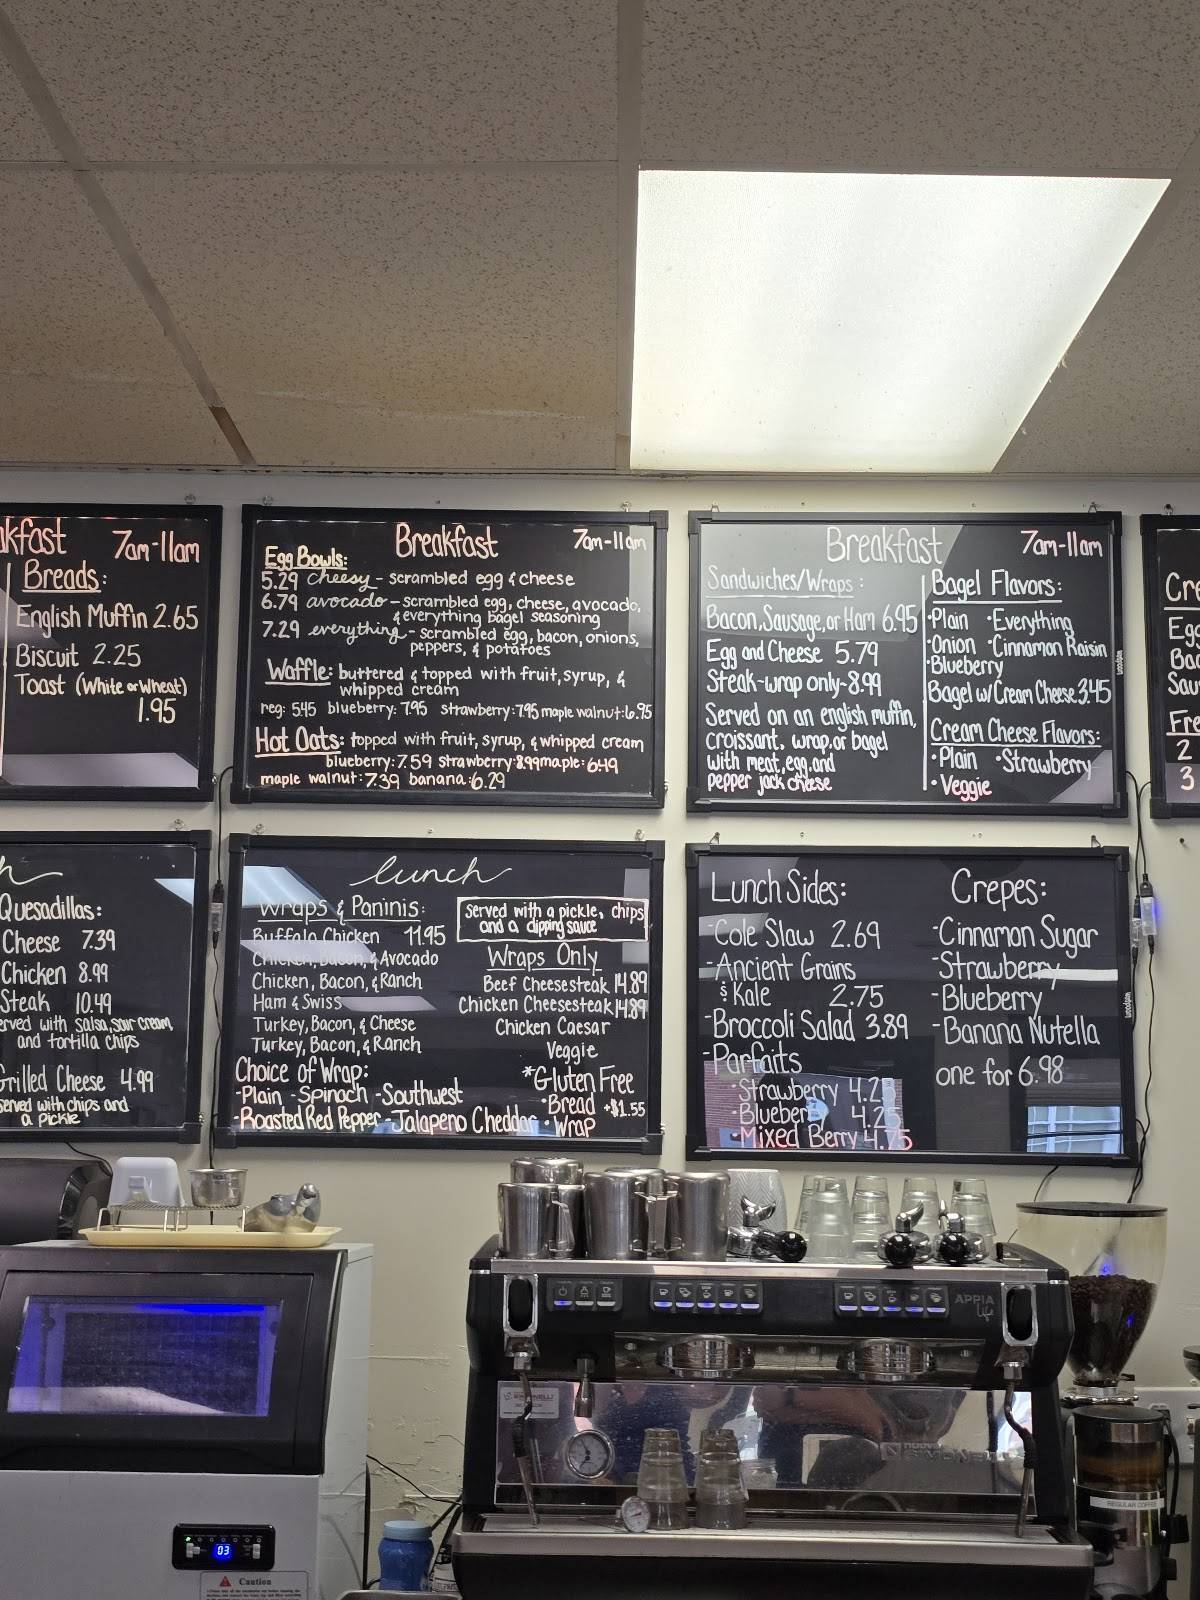 akfast 7am-11am
Breads:
English Muffin 2.65
Biscuit 2.25
Toast (White or Wheat)
1.95
Breakfast 7am-11am
Egg Bowls:
5.29 cheesy - scrambled egg & cheese
6.79 avocado - scrambled egg, cheese, avocado,
& everything bagel seasoning
7.29 everything - scrambled egg, bacon, onions,
peppers, & potatoes
Waffle: buttered & topped with fruit, syrup, &
whipped cream
reg: 5.45 blueberry: 7.95 strawberry: 7.95 maple walnut: 6.95
Hot Oats: topped with fruit, syrup, & whipped cream
blueberry: 7.59 strawberry: 8.99 maple: 6.49
maple walnut: 7.39 banana: 6.29
Breakfast 7am-11am
Sandwiches/Wraps:
Bacon, Sausage, or Ham 6.95
Egg and Cheese 5.79
Steak-wrap only-8.99
Served on an english muffin,
croissant, wrap, or bagel
with meat, egg, and
pepper jack cheese
Bagel Flavors:
•Plain •Everything
•Onion •Cinnamon Raisin
•Blueberry
Bagel w/ Cream Cheese 3.45
Cream Cheese Flavors:
•Plain •Strawberry
•Veggie
Cre
Egg
Bac
Sau
Fre
2
3
h
Quesadillas:
Cheese 7.39
Chicken 8.99
Steak 10.49
erved with salsa, sour cream,
and tortilla chips
Grilled Cheese 4.99
served with chips and
a pickle
lunch
Wraps & Paninis:
Buffalo Chicken 11.95
Chicken, Bacon, & Avocado
Chicken, Bacon, & Ranch
Ham & Swiss
Turkey, Bacon, & Cheese
Turkey, Bacon, & Ranch
Choice of Wrap:
-Plain -Spinach -Southwest
-Roasted Red Pepper -Jalapeno Cheddar
served with a pickle, chips
and a dipping sauce
Wraps Only
Beef Cheesesteak 14.89
Chicken Cheesesteak 14.89
Chicken Caesar
Veggie
*Gluten Free
•Bread +$1.55
•Wrap
Lunch Sides:
-Cole Slaw 2.69
-Ancient Grains
& Kale 2.75
-Broccoli Salad 3.89
-Parfaits
•Strawberry 4.25
•Blueberry 4.25
•Mixed Berry 4.75
Crepes:
-Cinnamon Sugar
-Strawberry
-Blueberry
-Banana Nutella
one for 6.98
APPIA
Life
SIMONELLI
nuova
SIMONELLI
REGULAR COFFEE
03
Caution